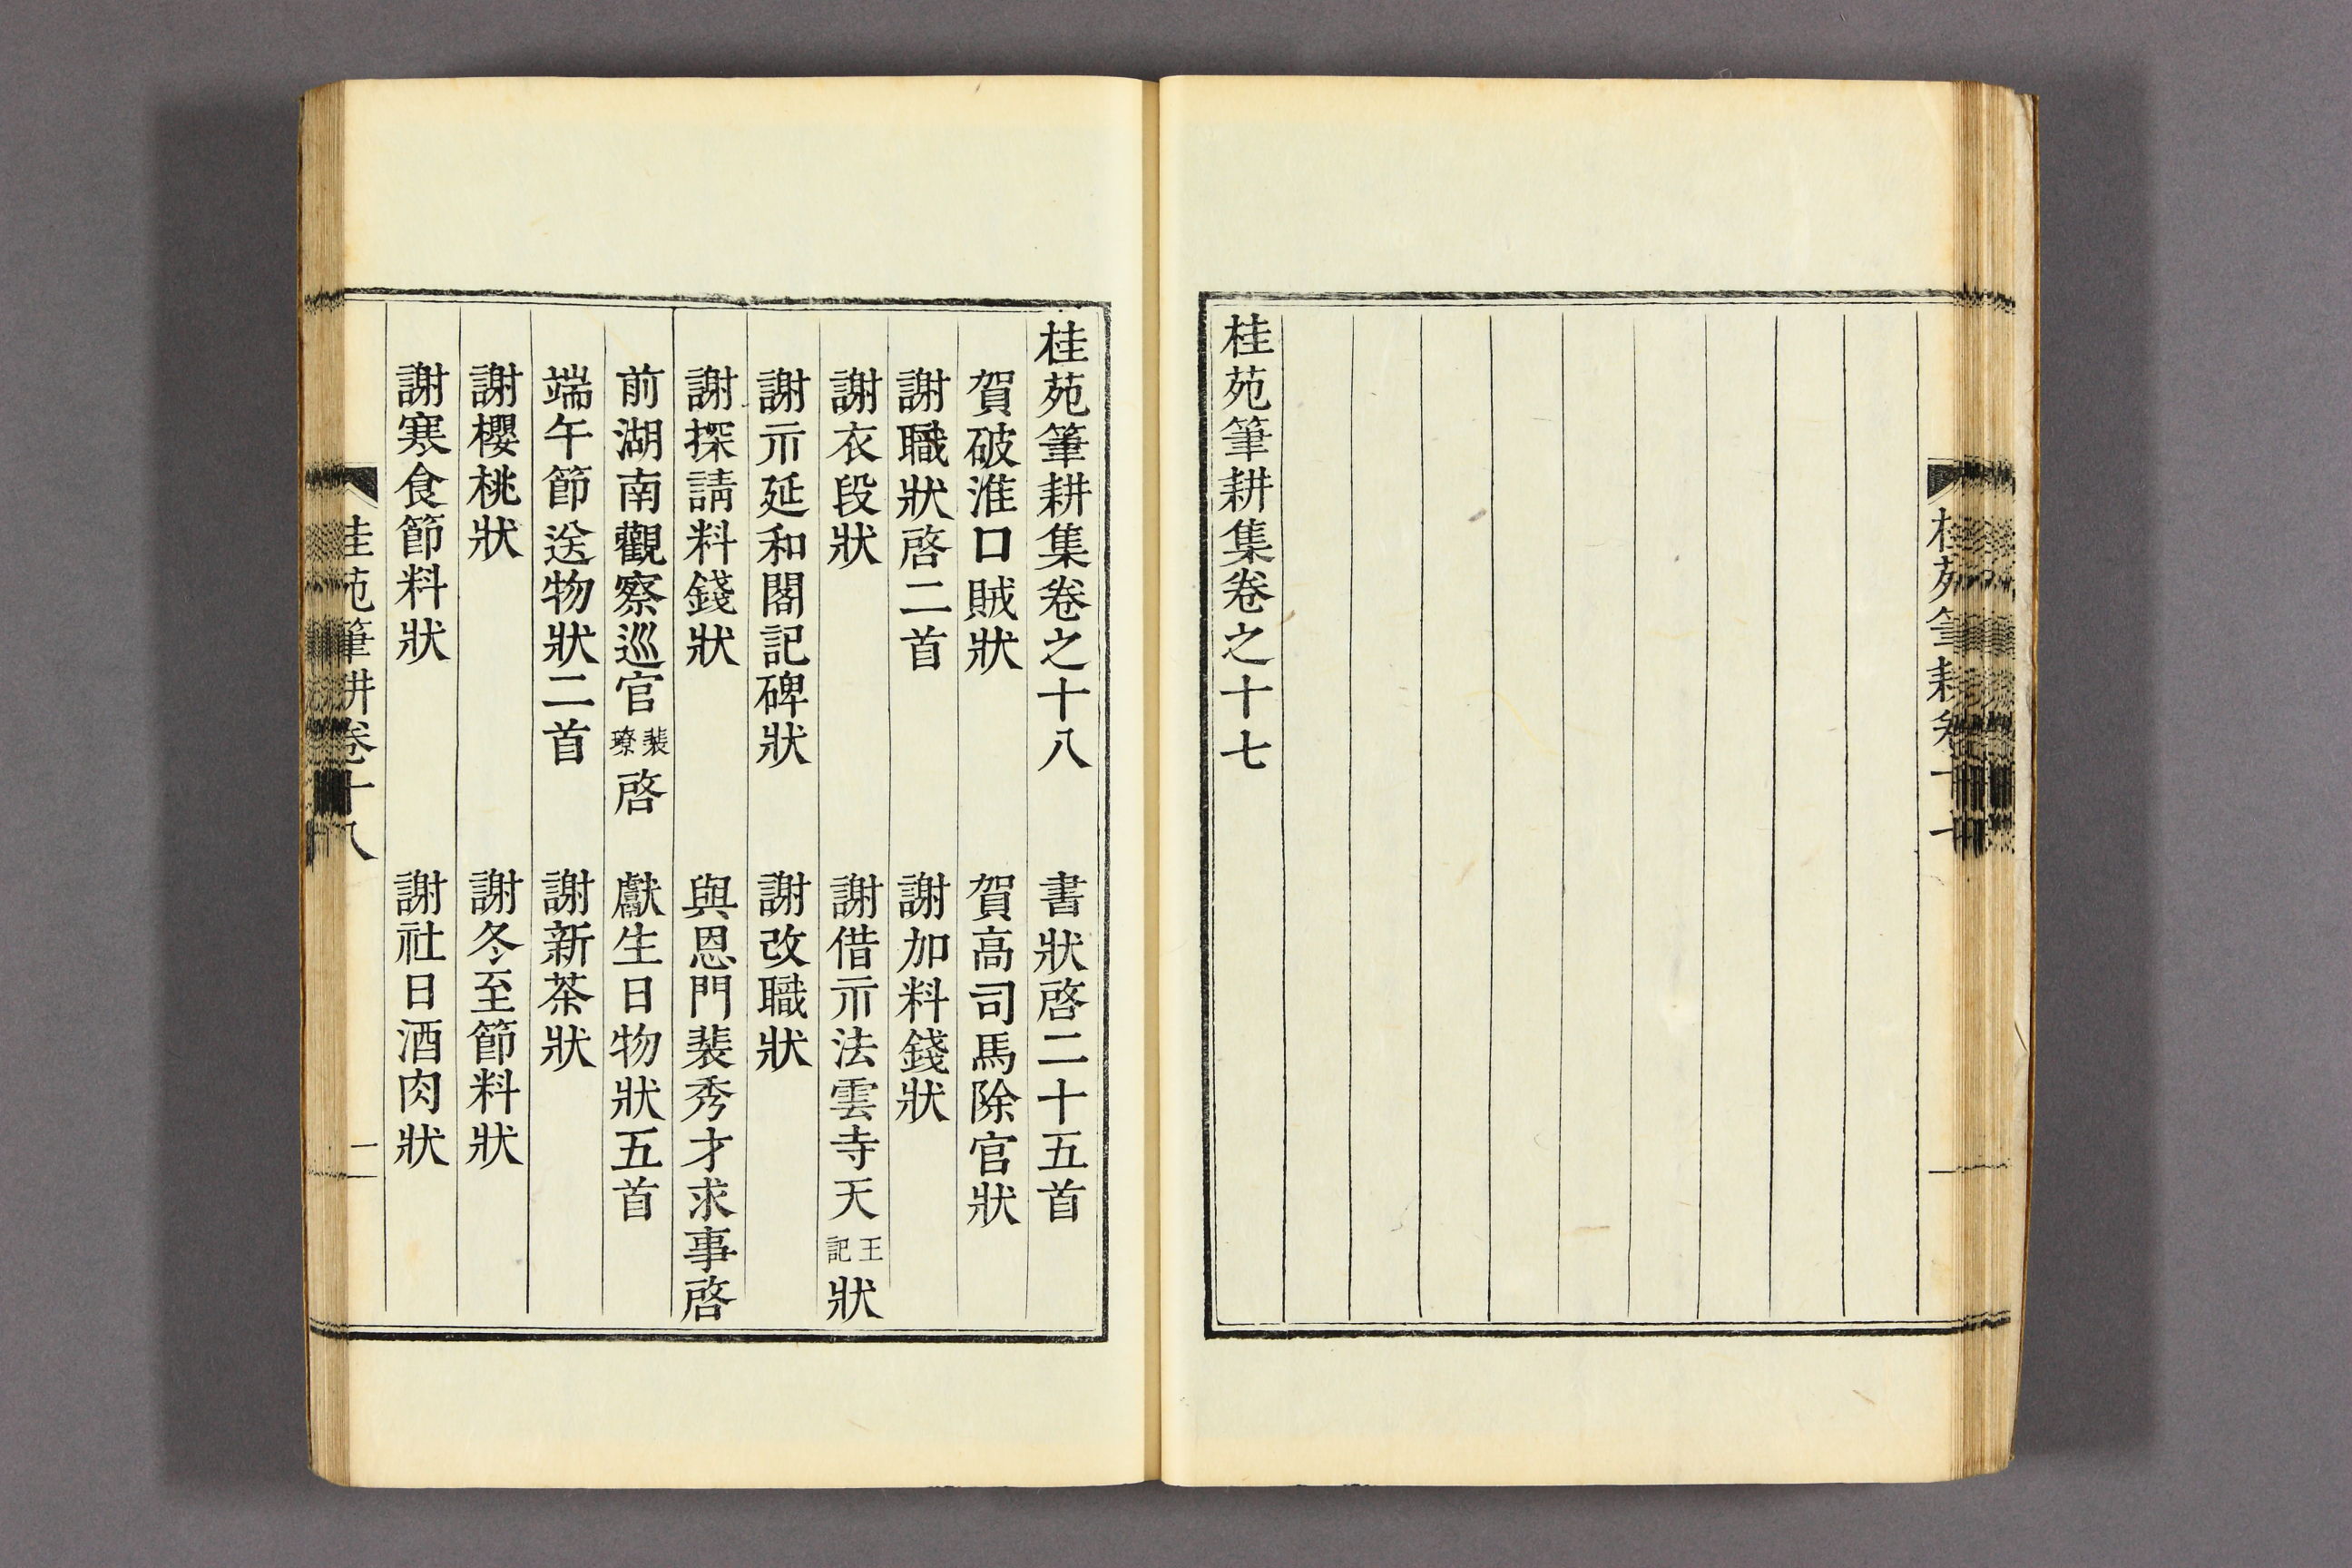 桂苑筆耕集卷之十七
桂苑筆耕集卷之十八　書狀啓二十五首
賀破淮口賊狀　賀高司馬除官狀
謝職狀啓二首　謝加料錢狀
謝衣段狀　謝借示法雲寺天王記狀
謝示延和閣記碑狀　謝改職狀
謝探請料錢狀　與恩門裴秀才求事啓
前湖南觀察巡官裴璙啓　獻生日物狀五首
端午節送物狀二首　謝新茶狀
謝櫻桃狀　謝冬至節料狀
謝寒食節料狀　謝社日酒肉狀
桂苑筆耕卷十八　一